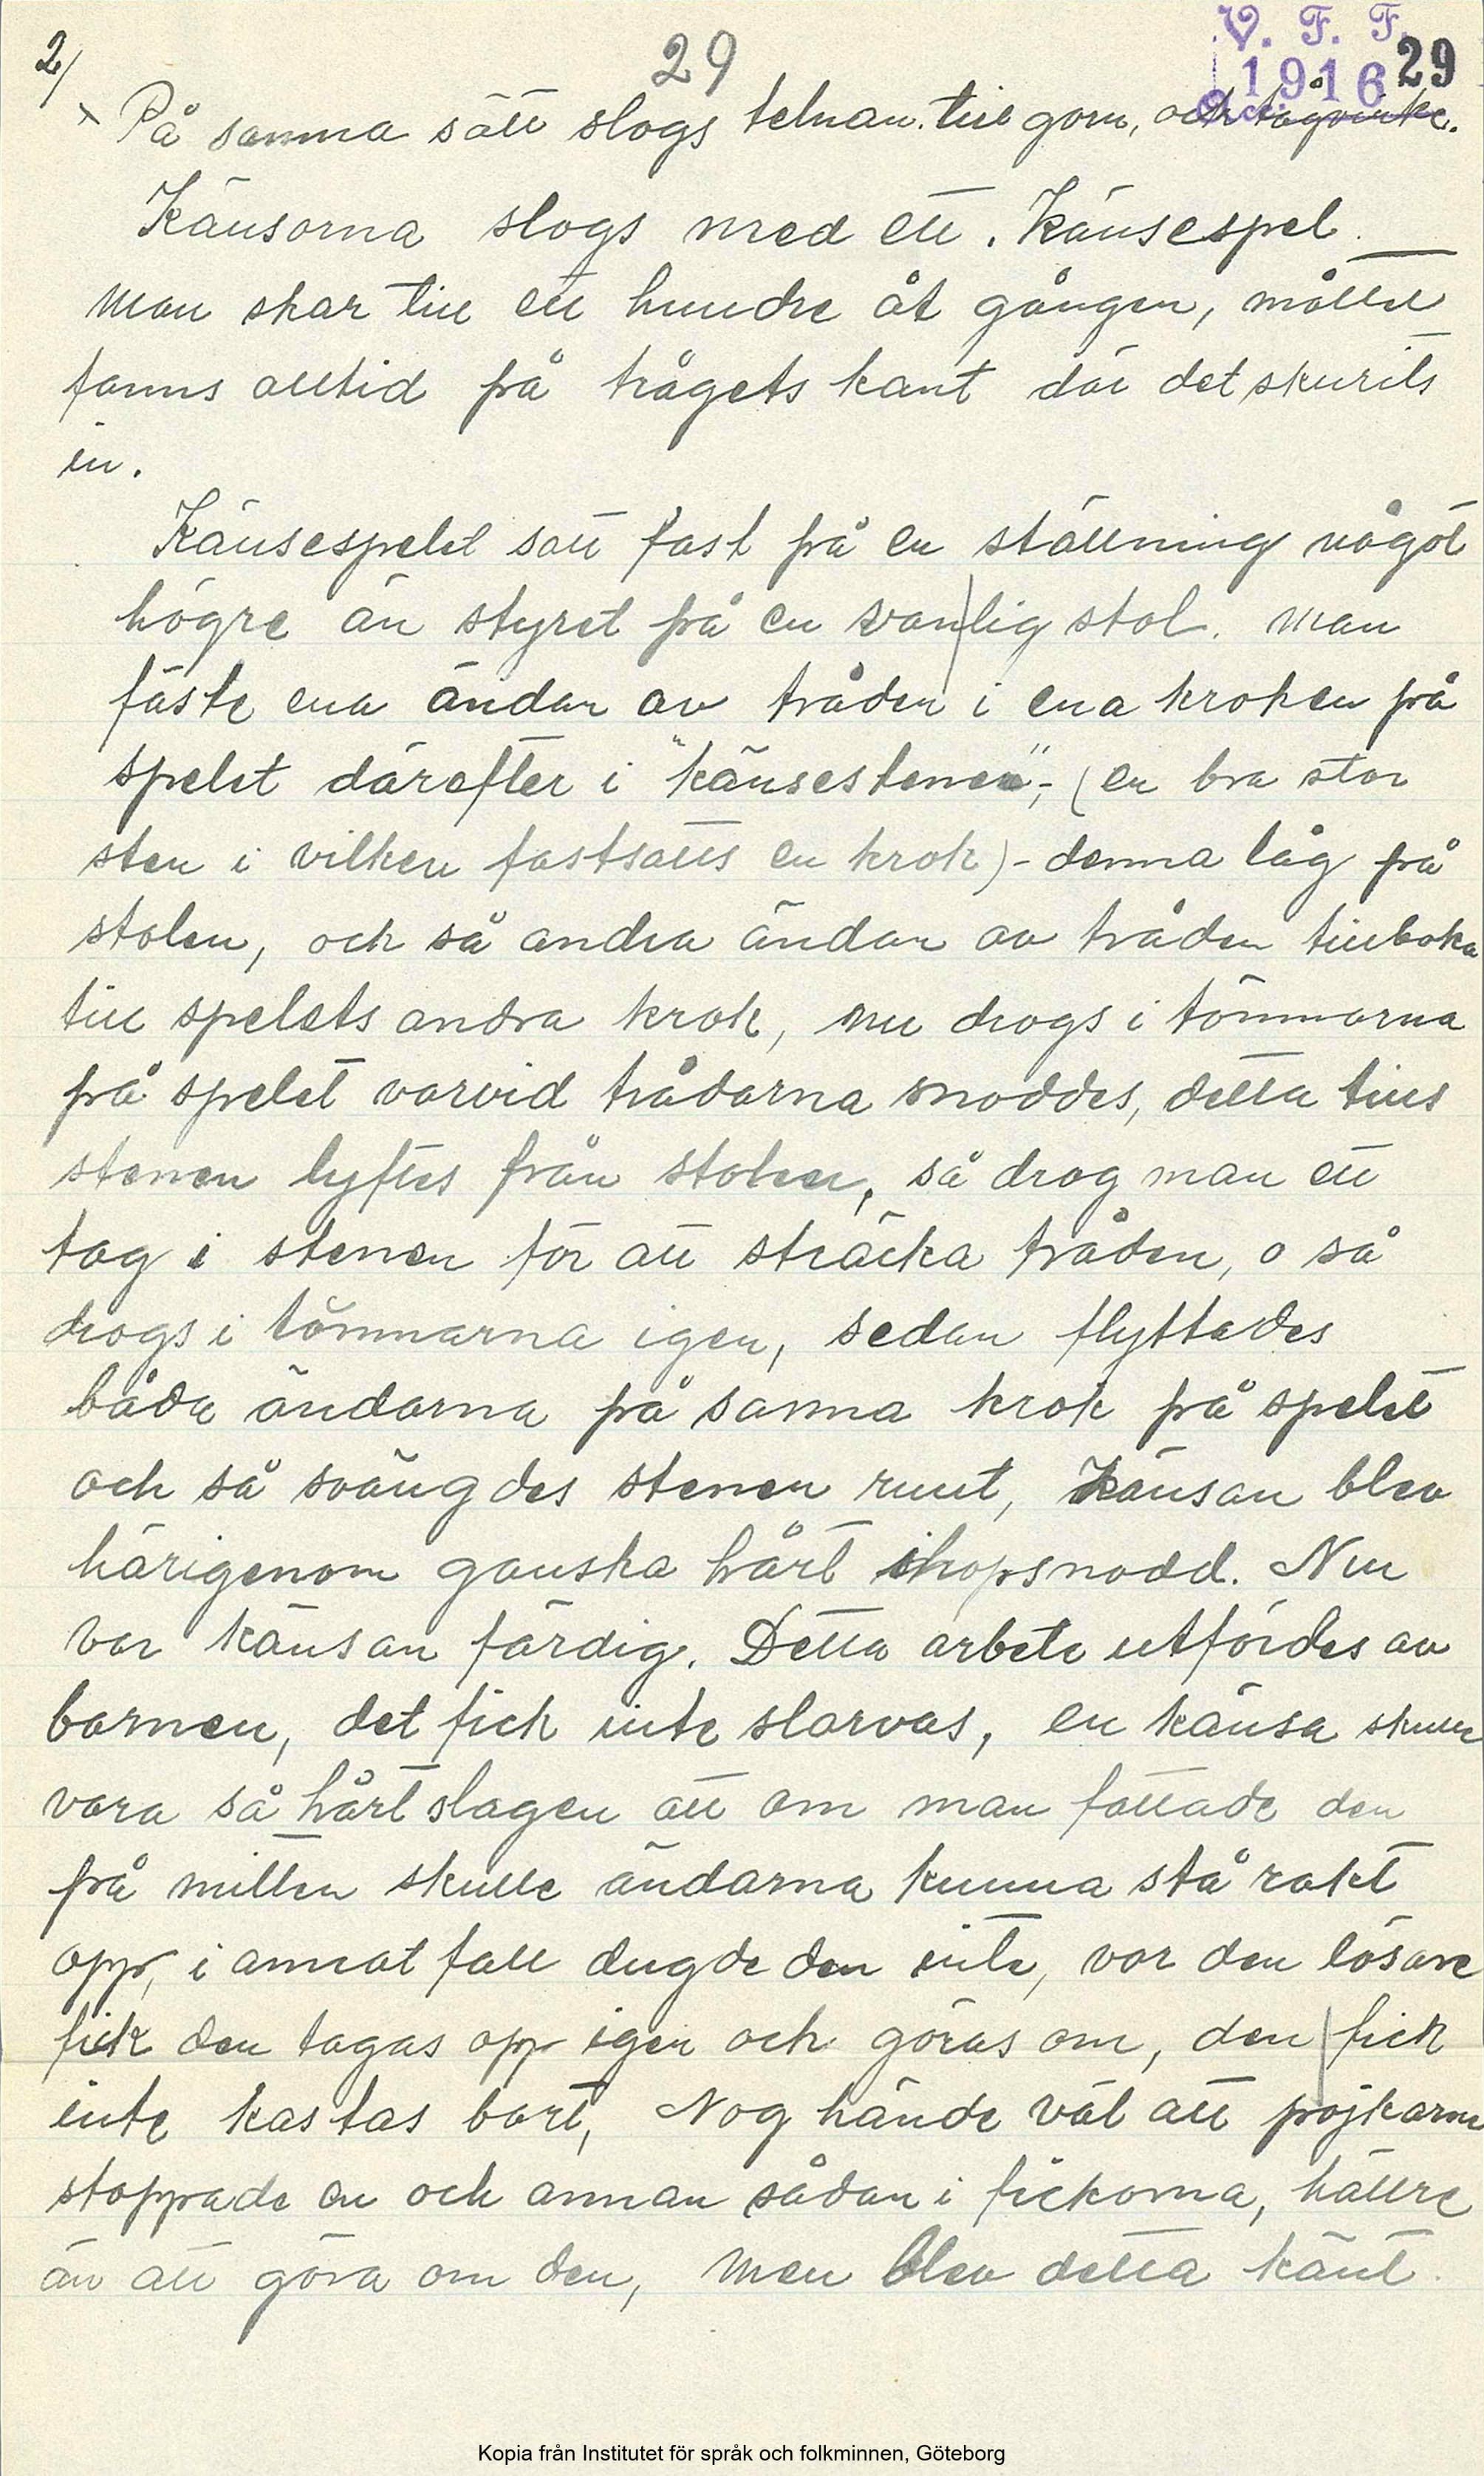 2/
29
V. F. F.
1916
29
Acc.
x På samma sätt slogs telnan. till gom, och tågvirke.
Känsorna slogs med ett. Känsespel.
Man skar till ett hundre åt gången, måttet
fanns alltid på trågets kant där det skurits
in.
Känsespelet satt fast på en ställning något
högre än styret på en vanlig stol. Man
fäste ena ändan av tråden i ena kroken på
spelet därefter i "känsestenen",- (en bra stor
sten i vilken fastsatts en krok)- denna låg på
stolen, och så andra ändan av tråden tillbaka
till spelets andra krok, nu drogs i tömmarna
på spelet varvid trådarna snoddes, detta tills
stenen lyftes från stolen, så drog man ett
tag i stenen för att sträcka tråden, o så
drogs i tömmarna igen, sedan flyttades
båda ändarna på samma krok på spelet
och så svängdes stenen runt, Känsan blev
härigenom ganska hårt ihopsnodd. Nu
var känsan färdig. Detta arbete utfördes av
barnen, det fick inte slarvas, en känsa skulle
vara så hårt slagen att om man fattade den
på mitten skulle ändarna kunna stå rakt
opp, i annat fall dugde den inte, var den lösare
fick den tagas opp igen och göras om, den fick
inte kastas bort, Nog hände väl att pojkarna
stoppade en och annan sådan i fickorna, hällre
än att göra om den, Men blev detta känt.
Kopia från Institutet för språk och folkminnen, Göteborg